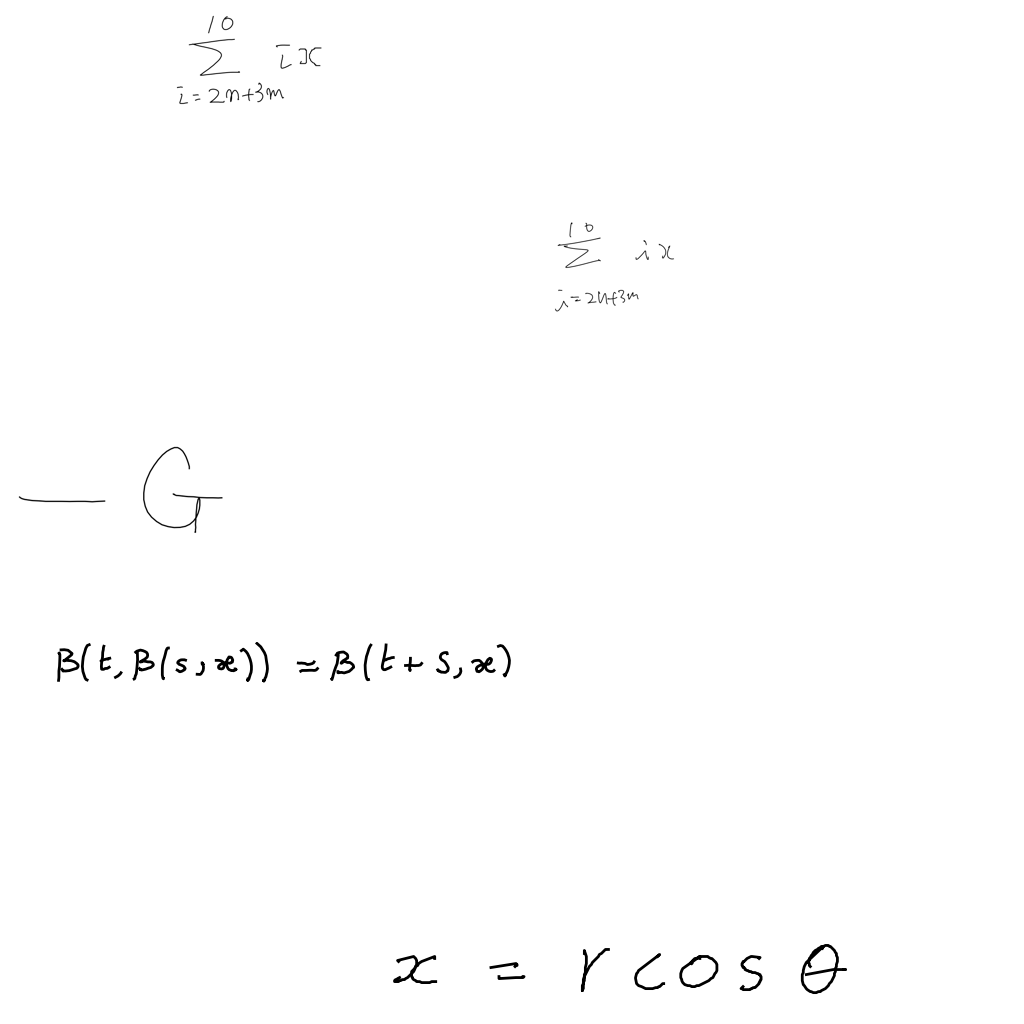 \sum_{i=2n+3m}^{10} ix
\sum_{i=2n+3m}^{10} ix
-G
\beta(t,\beta(s,x))=\beta(t+s,x)
x=r\cos\theta